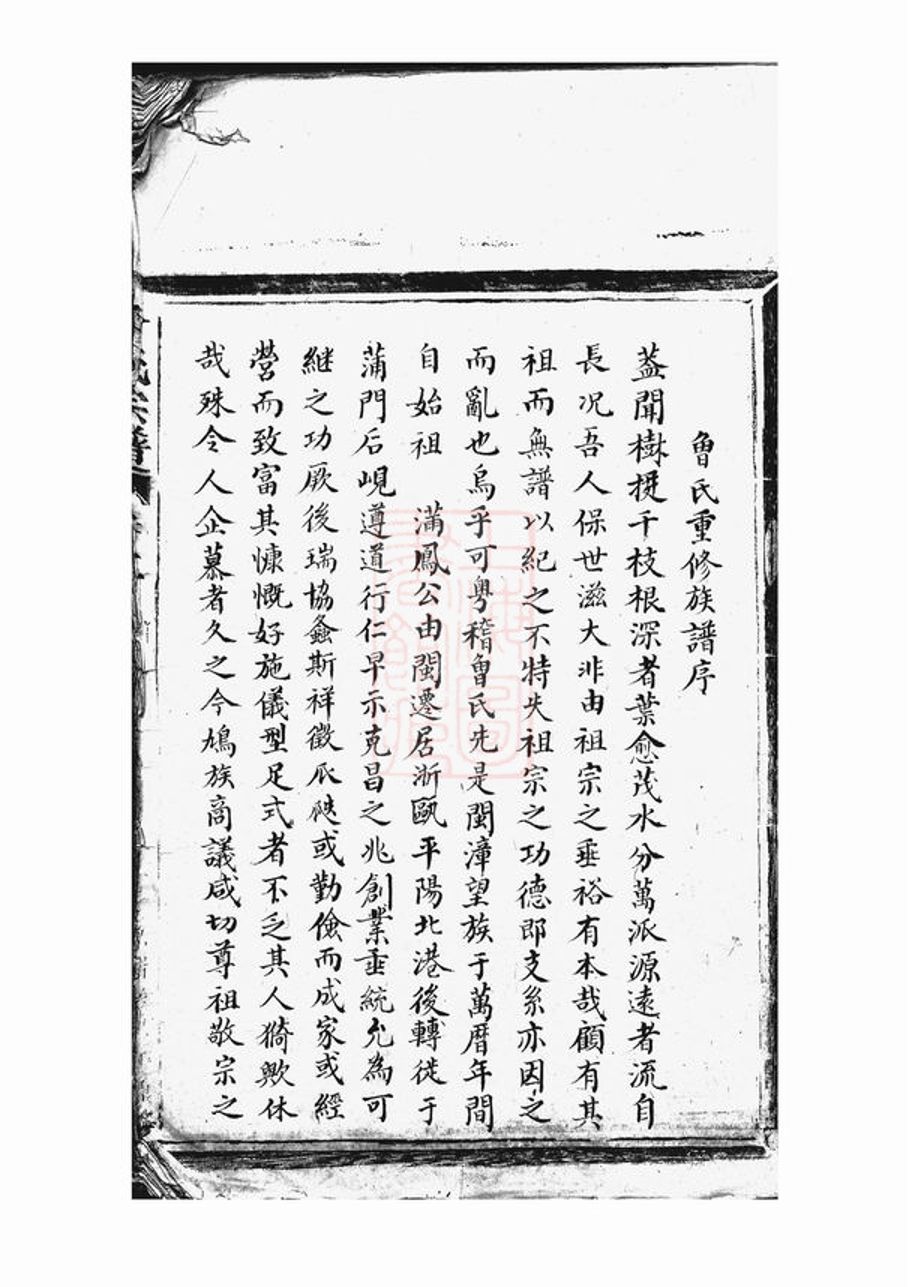 魯氏重修族譜序
葢聞樹挺千枝根深者葉愈茂水分萬派源遠者流自
長況吾人保世滋大非由祖宗之垂裕有本哉顧有其
祖而無譜以紀之不特失祖宗之功德即支系亦因之
而亂也烏乎可粵稽魯氏先是閩漳望族于萬曆年間
自始祖 滿鳳公由閩遷居浙甌平陽北港後轉徙于
蒲門后峴遵道行仁早示克昌之兆創業垂統允為可
継之功厥後瑞協螽斯祥徵瓜瓞或勤儉而成家或經
營而致富其慷慨好施儀型足式者不乏其人猗歟休
哉殊令人企慕者久之今鳩族商議咸切尊祖敬宗之